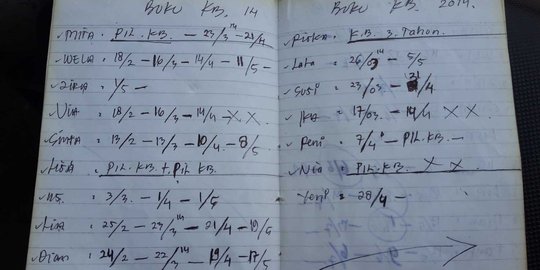 BUKU KB. 14
MITA : PIL. KB. - 23/3 14 - 23/4
WELA : 18/2 - 16/3 - 14/4 - 11/5 -
ZIKA : 1/5 -
Via : 18/2 - 16/3 - 14/4 - X X
SINTA : 13/2 - 13/3 - 10/4 - 8/5
Lisa : PIL. KB. + PIL KB.
IIS. : 3/3. - 1/4 - 1/5
Lisa : 25/2 - 24/3 14 - 21/4 - 19/5
Dian : 24/2 - 22/3 14 - 19/4 - 17/5
BUKU KB. 2014.
Riska : K.B 3. Tahon.
Lata : 26/03 14 - 5/5
SUSI : 23/03 - 21/4
IKA : 17/03 - 14/4 X X
Reni : 7/4 - PIL. KB. -
Nia : PIL. KB. X X
Yeni : 28/4 -